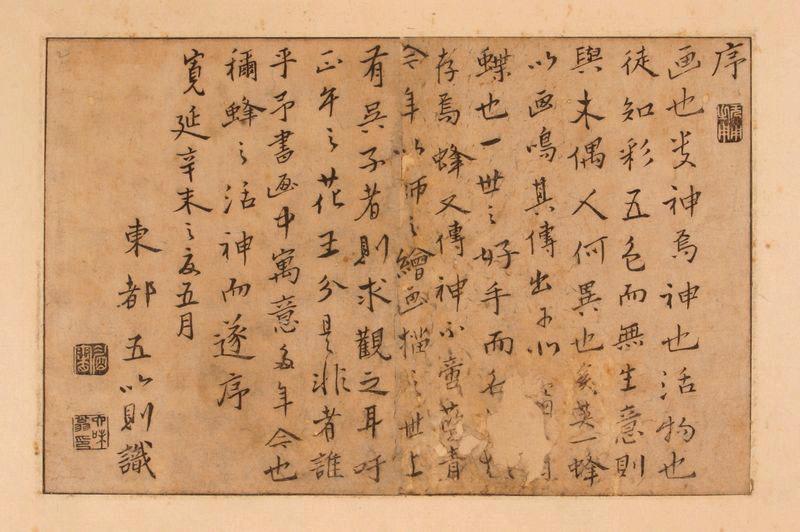 序
画也神焉神也活物也
徒知彩五色而無生意則
與木偶人何異也英一蜂
以画鳴其傳出于
蝶也一世之好手而名
存焉蜂又傳神不啻藍青
今年以師之繪画描之世上
有具子者則求觀之耳吁
正年之花王分是非者誰
乎予書画中寓意多年今也
稱蜂之活神而遂序
寛延辛未之夏五月
東都 五以則識